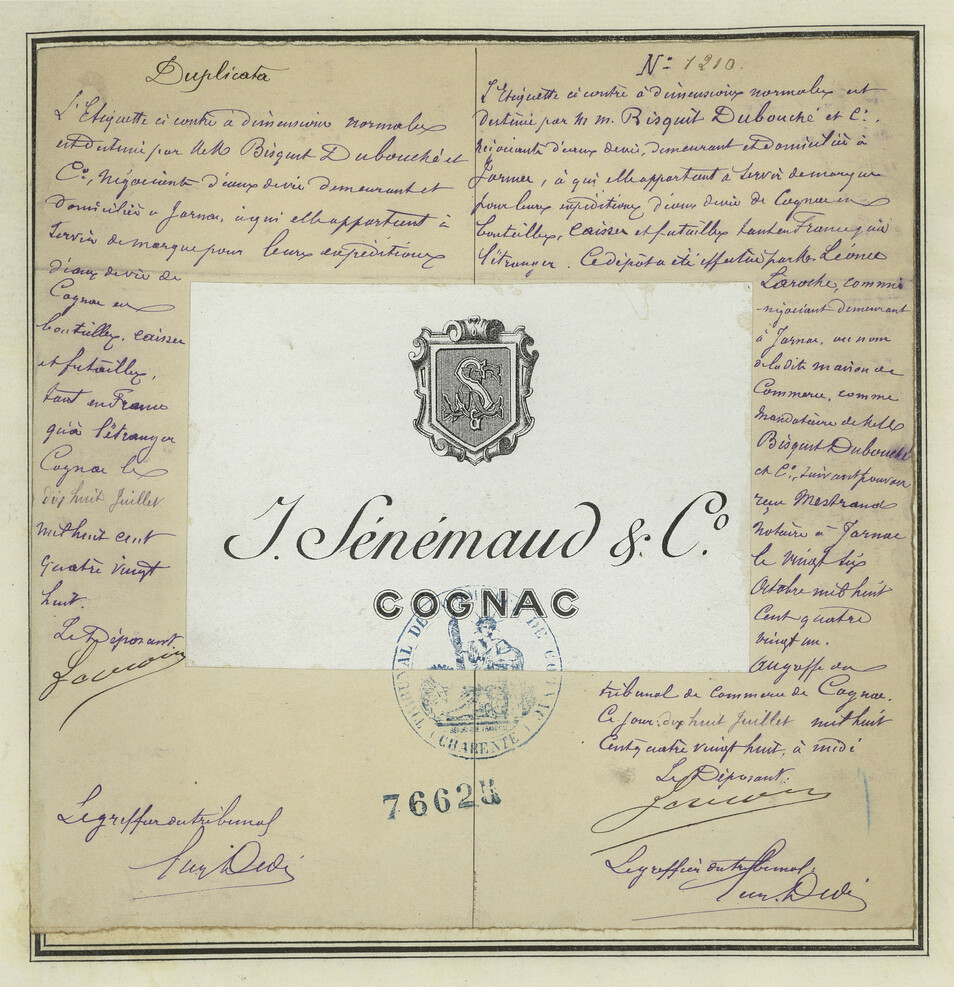 Duplicata
L'Etiquette ci contre à dimensions normales
est destiné par M.M. Bisquit Dubouché et
Co, Négociants d'eaux de vie demeurant et
domiciliés à Jarnac, à qui elle appartient à
servir de marque pour leurs expéditions
d'eaux de vie de
Cognac en
bouteilles, caisses
et futailles,
tant en France
qu'à l'étranger
Cognac le
dix huit Juillet
mil huit cent
quatre vingt
huit.
Le Déposant
Le greffier du tribunal
No 1210.
L'Etiquette ci contre à dimensions normales est
destiné par M. M. Bisquit Dubouché et Co.
négociants d'eaux de vie, demeurant et domiciliés à
Jarnac, à qui elle appartient à servir de marque
pour leurs expéditions d'eaux de vie de Cognac en
bouteilles, caisses et futailles tant en France qu'à
l'étranger. Ce dépôt a été effectué par Mr Léonce
Laroche, commis
négociant demeurant
à Jarnac, au nom
de la dite maison de
Commerce, comme
mandataire de M.M.
Bisquit Dubouché
et Co, suivant pouvoir
reçu Mestraud
Notaire à Jarnac
le vingt six
Octobre mil huit
cent quatre
vingt un.
au greffe du
tribunal de commerce de Cognac.
Ce jour dix huit Juillet mil huit
Cent quatre vingt huit, à midi
Le Déposant:
Le greffier du tribunal,
J. Sénémaud & Co.
COGNAC
TRIBUNAL DE DE COGNAC
(CHARENTE)
7662